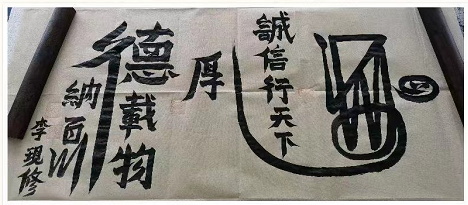 誠信行天下
厚
德載物
納百川
李現修